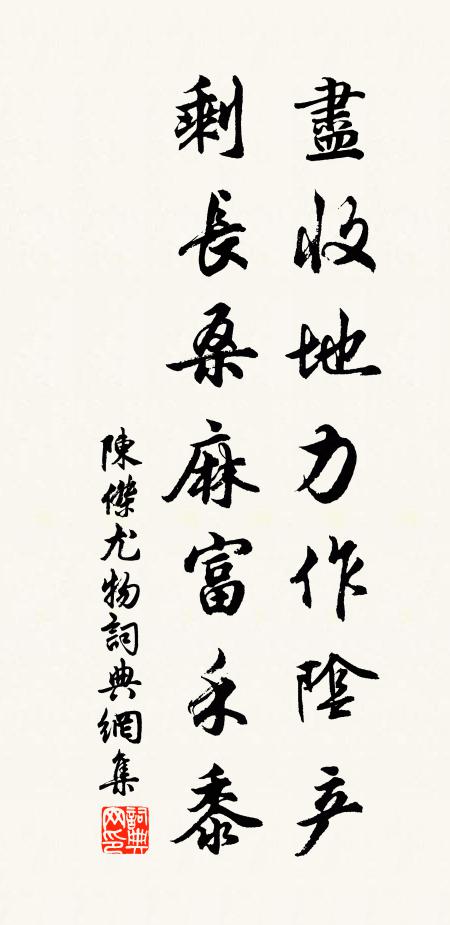 盡收地力作陰产
剩長桑麻富禾黍
陳傑尤物詞典網集
詞典网印